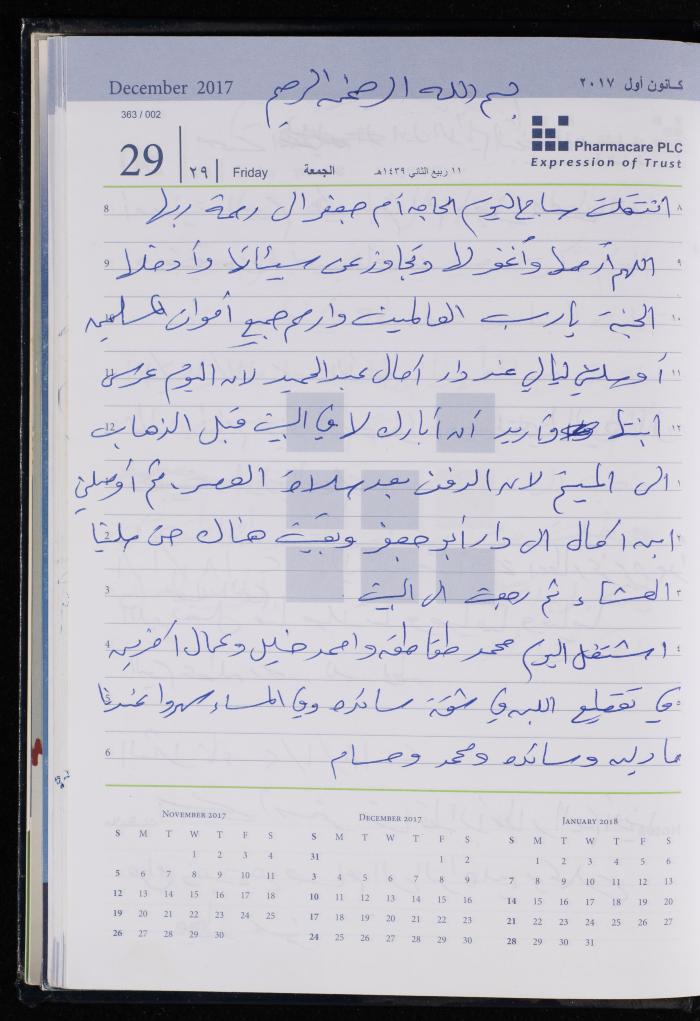 December 2017 بسم الله الرحمن الرحيم كانون أول ٢٠١٧
363 / 002
Pharmacare PLC
Expression of Trust
29 ٢٩ Friday الجمعة ١١ ربيع الثاني ١٤٣٩هـ
8 انتقلت صباح اليوم الحاجه أم جعفر الى رحمة ربها ٨
9 اللهم أرحمها وأغفر لها وتجاوز عن سيئاتها وأدخلها ٩
الجنة يا رب العالمين وارحم جميع أموات المسلمين ١٠
11 أوصلني ليالي عند دار اكمال عبدالحميد لان اليوم عرس ١١
12 ابنتها وأريد أن أبارك لها في البيت قبل الذهاب ١٢
الى المسيخ لان الدفن بعد صلاة العصر. ثم أوصلني ١
2 ابن اكمال الى دار أبو جعفر وبقيت هناك حتى صلينا ٢
3 العشاء ثم رجعت الى البيت ٣
4 اشتغل اليوم محمد طقاطقه واحمد خليل وعمال اخرين ٤
5 في تقطيع اللبن في شقة سائده وفي المساء سهروا عندنا ٥
6 مادلين وسائده ومحمد وحسام
NOVEMBER 2017
S M T W T F S
1 2 3 4
5 6 7 8 9 10 11
12 13 14 15 16 17 18
19 20 21 22 23 24 25
26 27 28 29 30
DECEMBER 2017
S M T W T F S
31 1 2
3 4 5 6 7 8 9
10 11 12 13 14 15 16
17 18 19 20 21 22 23
24 25 26 27 28 29 30
JANUARY 2018
S M T W T F S
1 2 3 4 5 6
7 8 9 10 11 12 13
14 15 16 17 18 19 20
21 22 23 24 25 26 27
28 29 30 31